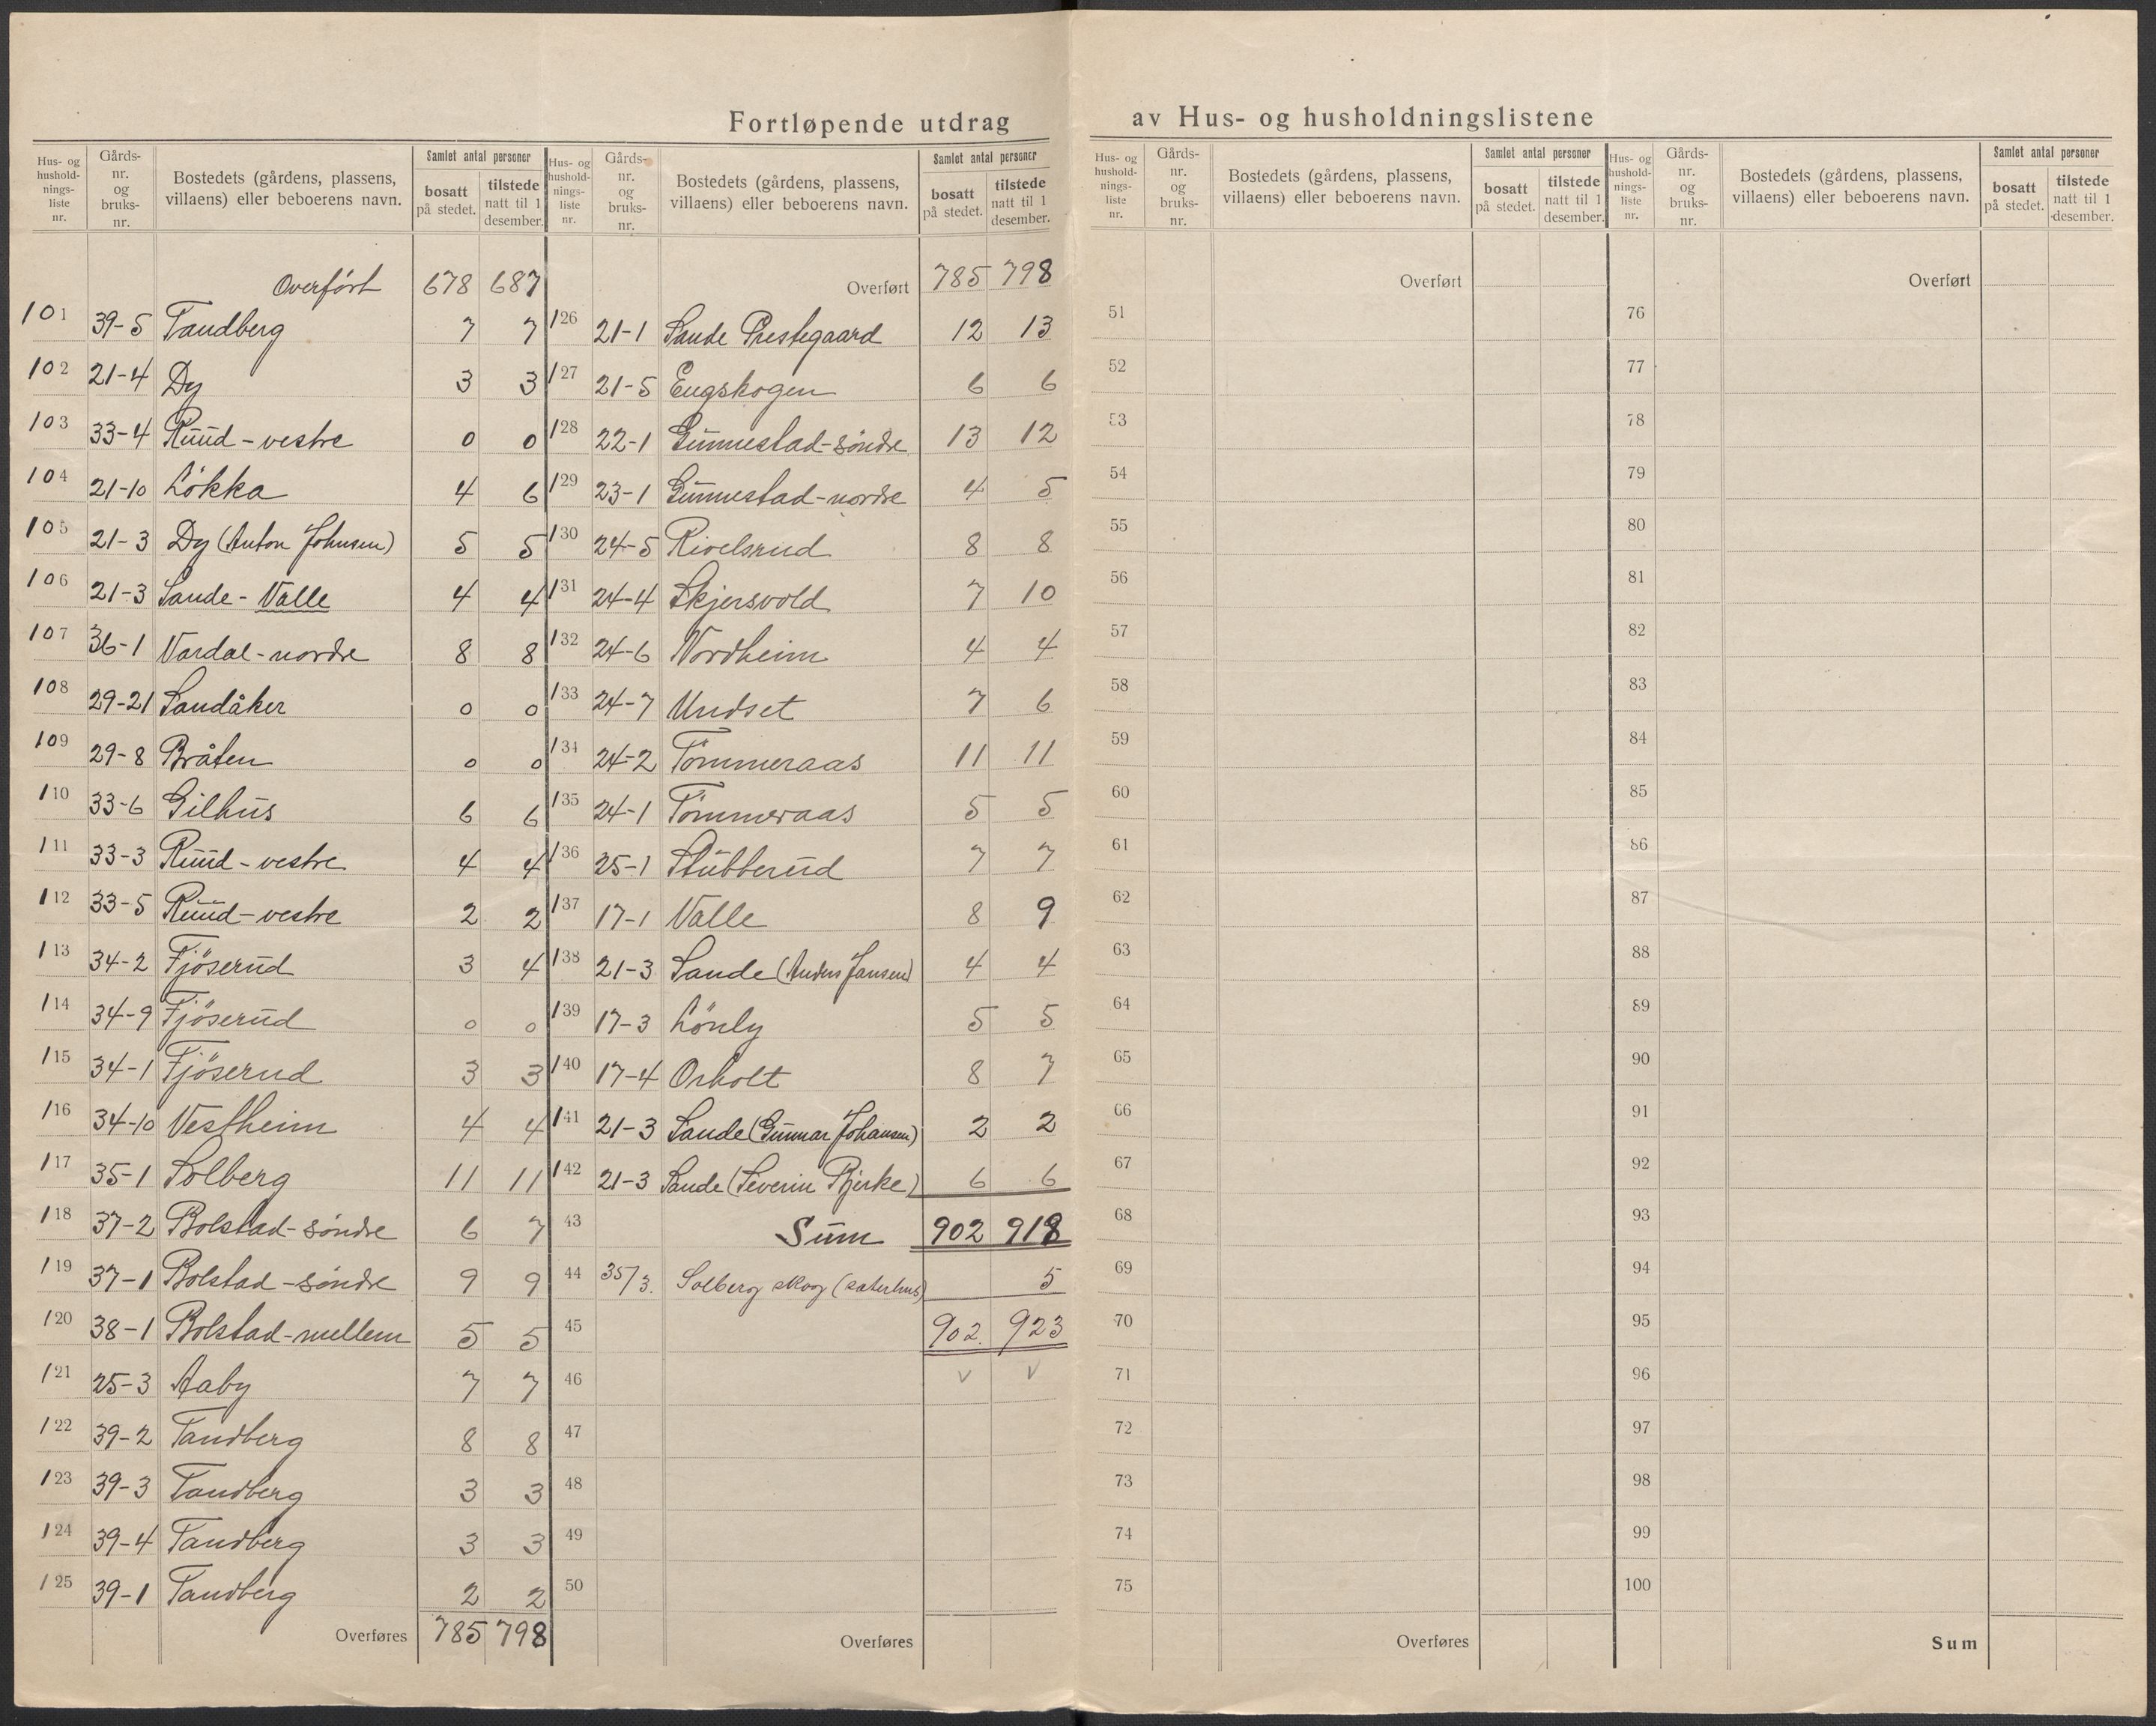 Fortløpende utdrag av Hus- og husholdningslistene
Hus- og hushold- nings- liste nr. | Gårds- nr. og bruks- nr. | Bostedets (gårdens, plassens, villaens) eller beboerens navn. | Samlet antal personer | bosatt på stedet. | tilstede natt til 1 desember.
Overført 678 687
101 39-5 Tandberg 7 7
102 21-4 Dy 3 3
103 33-4 Ruud-vestre 0 0
104 21-10 Løkka 4 6
105 21-3 Dy (Anton Johnsen) 5 5
106 21-3 Sande-Valle 4 4
107 36-1 Vardal-nordre 8 8
108 29-21 Sandåker 0 0
109 29-8 Bråten 0 0
110 33-6 Gilhus 6 6
111 33-3 Ruud-vestre 4 4
112 33-5 Ruud-vestre 2 2
113 34-2 Fjöserud 3 4
114 34-9 Fjöserud 0 0
115 34-1 Fjöserud 3 3
116 34-10 Vestheim 4 4
117 35-1 Solberg 11 11
118 37-2 Bolstad-söndre 6 7
119 37-1 Bolstad-söndre 9 9
120 38-1 Bolstad-mellem 5 5
121 25-3 Aaby 7 7
122 39-2 Tandberg 8 8
123 39-3 Tandberg 3 3
124 39-4 Tandberg 3 3
125 39-1 Tandberg 2 2
Overføres 785 798
Hus- og hushold- nings- liste nr. | Gårds- nr. og bruks- nr. | Bostedets (gårdens, plassens, villaens) eller beboerens navn. | Samlet antal personer | bosatt på stedet. | tilstede natt til 1 desember.
Overført 785 798
126 21-1 Sande Prestegaard 12 13
127 21-5 Engskogen 6 6
128 22-1 Gunnestad-söndre 13 12
129 23-1 Gunnestad-nordre 4 5
130 24-5 Rivelsrud 8 8
131 24-4 Skjersvold 7 10
132 24-6 Nordheim 4 4
133 24-7 Undset 7 6
134 24-2 Tömmeraas 11 11
135 24-1 Tömmeraas 5 5
136 25-1 Stubberud 7 7
137 17-1 Valle 8 9
138 21-3 Sande (Anders Jansen) 4 4
139 17-3 Lönly 5 5
140 17-4 Orholt 8 7
141 21-3 Sande (Gunnar Johansen) 2 2
142 21-3 Sande (Severin Bjerke) 6 6
43 Sum 902 918
44 35/3. Solberg skog (sæterhus) 5
45 902. 923
46 v v
47
48
49
50
Overføres
Hus- og hushold- nings- liste nr. | Gårds- nr. og bruks- nr. | Bostedets (gårdens, plassens, villaens) eller beboerens navn. | Samlet antal personer | bosatt på stedet. | tilstede natt til 1 desember.
Overført
51
52
53
54
55
56
57
58
59
60
61
62
63
64
65
66
67
68
69
70
71
72
73
74
75
Overføres
Hus- og hushold- nings- liste nr. | Gårds- nr. og bruks- nr. | Bostedets (gårdens, plassens, villaens) eller beboerens navn. | Samlet antal personer | bosatt på stedet. | tilstede natt til 1 desember.
Overført
76
77
78
79
80
81
82
83
84
85
86
87
88
89
90
91
92
93
94
95
96
97
98
99
100
Sum